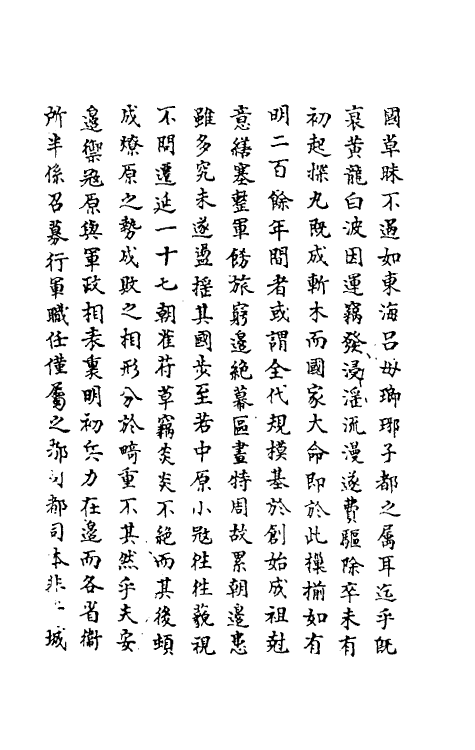 國草昧不過如東海呂母瑯琊子都之属耳迄乎旣
衰黄龍白波因運竊發浸滛流漫遂費驅除卒未有
初起探丸旣成斬木而國家大命即於此摷揃如有
明二百餘年間者或謂全代規模基於創始成祖尅
意繕塞整軍餙旅窮邉絶幕區畫特周故累朝邉患
雖多究未遂盪揺其國步至若中原小冦徃徃藐視
不問遷延一十七朝萑苻草竊炎炎不絶而其後頓
成燎原之勢成敗之相形分於畸重不其然乎夫安
邉禦冦原與軍政相表裏明初兵力在邉而各省衛
所半係召募行軍職任僅屬之都司都司本非 城